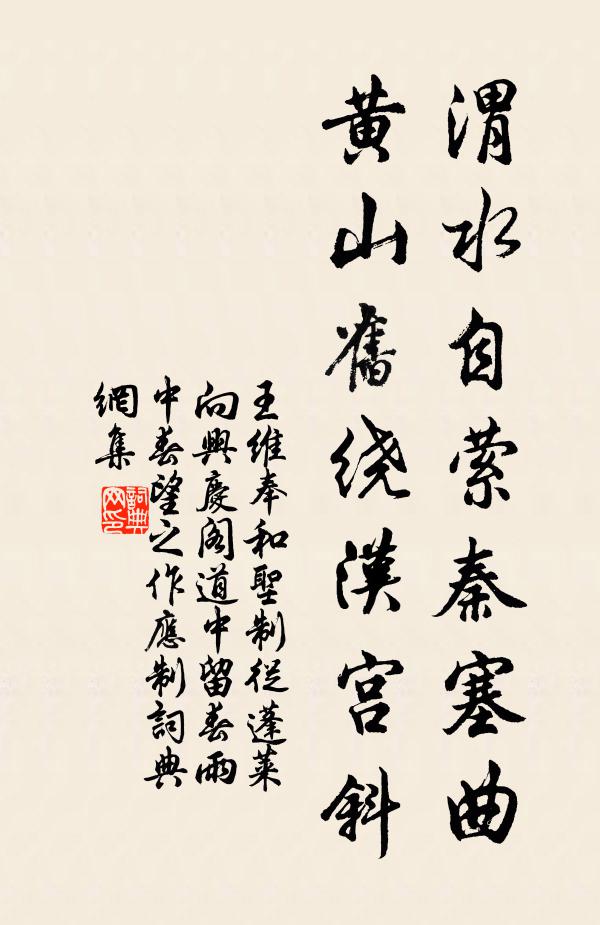 渭水自萦秦塞曲
黄山舊绕漢宫斜
王維奉和聖制從蓬萊
向興慶閣道中留春雨
中春望之作應制詞典
網集
詞典
网印